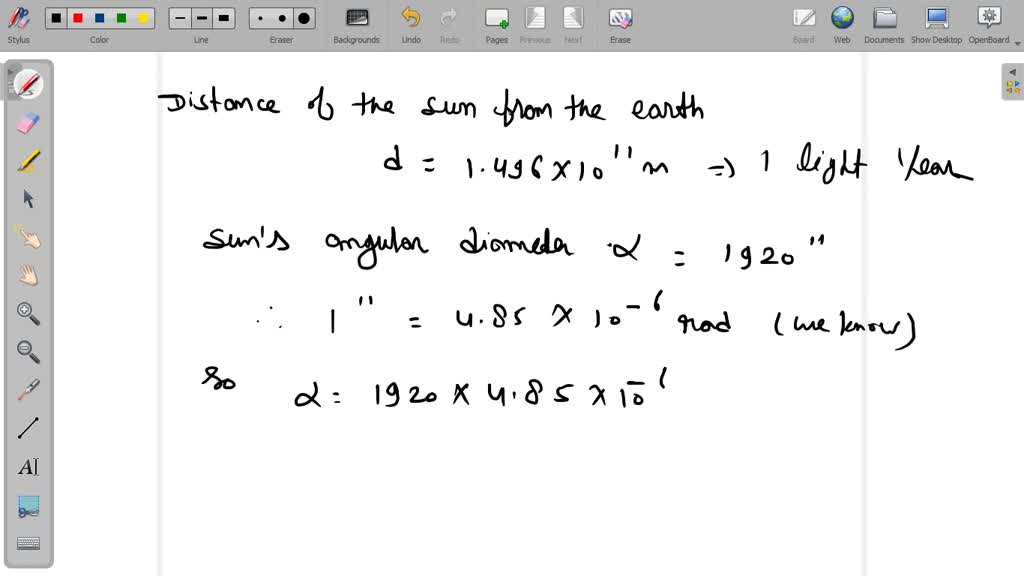 Stylus Color Line Eraser Backgrounds Undo Redo Pages Previous Next Erase Board Web Documents Show Desktop OpenBoard
Distance of the sun from the earth
d = 1.496 × 10¹¹ m ⇒ 1 light year
Sun's angular diameter α = 1920"
∴ 1" = 4.85 × 10⁻⁶ rad (we know)
So α = 1920 × 4.85 × 10⁻⁶
AI